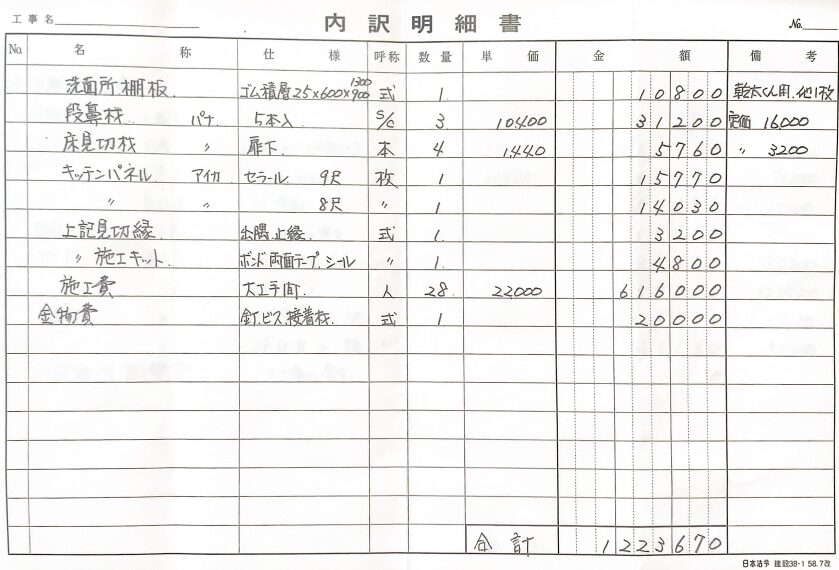 工事名 内訳明細書 No.
No. 名称 仕様 呼称 数量 単価 金額 備考
洗面所棚板. ゴム積層25×600×900 1200 式 1. 10800 乾太くん用.他1枚
段鼻材. パナ. 5本入 S/C 3. 10,400 31200 定価 16,000
床見切材 〃 扉下. 本 4 1,440 5760 〃 3200
キッチンパネル. アイカ. セラール. 9尺 枚 1 15770
〃 〃 8尺 〃 1 14030
上記見切縁. 出隅.止縁. 式 1. 3200
〃 施工キット. ボンド.両面テープ.シール 〃 1. 4800
施工費 大工手間. 人 28. 22,000 616000
金物費 釘.ビス.接着材. 式 1 20000
合計 1223670
日本法令 建設38-1 58.7改